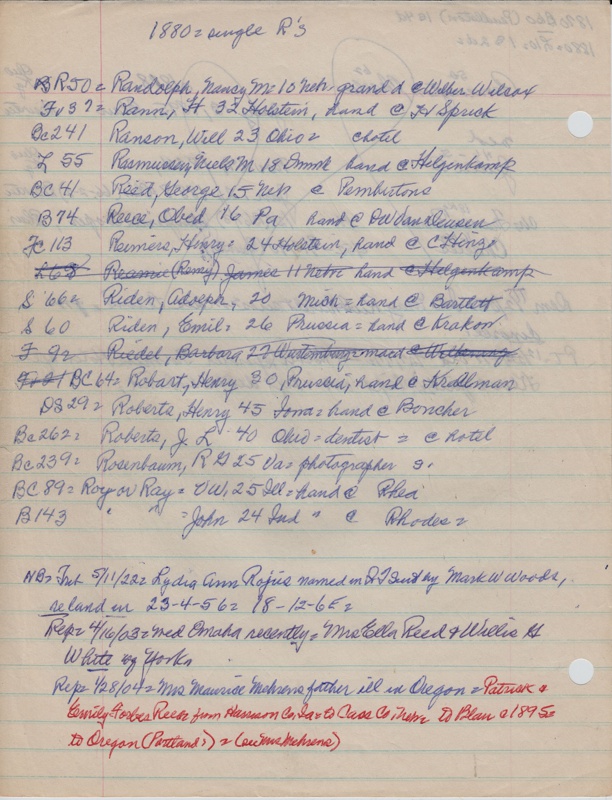 1880 = single R's
B R50 = Randolph, Nancy M = 10 Nebr grand d c Wilber Wilcox
Fv 37 = Rann, H 32 Holstein, hand c Fr Sprick
Bc 241 Ranson, Will 23 Ohio = c hotel
L 55 Rasmussen, Niels M 18 Dnmk hand c Hilgenkamp
BC 41 Reed, George 15 Neb c Pembertons
B 74 Reece, Obed 16 Pa hand c DW Van Deusen
Fc 113 Reimers, Hinry = 24 Holstein, hand c C Hinz
L 68 Reamie (Remy) James 11 Nebr hand c Hilgenkamp
S 66 = Riden, Adolph, 20 Mich = hand c Bartlett
S 60 Riden, Emil = 26 Prussia = hand c Krakow
F 92 Riedel, Barbara 27 Wurtemburg = maid c
BC 64 = Robart, Henry 30, Prussia, hand c Krallman
DS 29 = Roberts, Henry 45 Iowa = hand c Boncher
Bc 262 = Roberts, J. L 40 Ohio = dentist = c hotel
Bc 239 = Rosenbaum, R G 25 Va = photographer s.
BC 89 = Roy or Ray = VW, 25 Ill = hand c Rhea
B 143 " " = John 24 Ind " c Rhodes =
NB = 5/11/22 = Lydia Ann Rogus named in by Mark W Woods,
re land in 23-4-56 = 18-12-6E =
Rep = 4/16/03 = wed Omaha recently = Mrs Ella Reed & Willis G
White by Yorks
Rep = 1/28/04 = Mrs Maurice Mehrens father ill in Oregon = Patrick &
Emily Forbes Reese from Harrison Co, Ia = to Cass Co, there to Blair c 1895 =
to Oregon (Portland?) = (ou Mrs Mehrens)